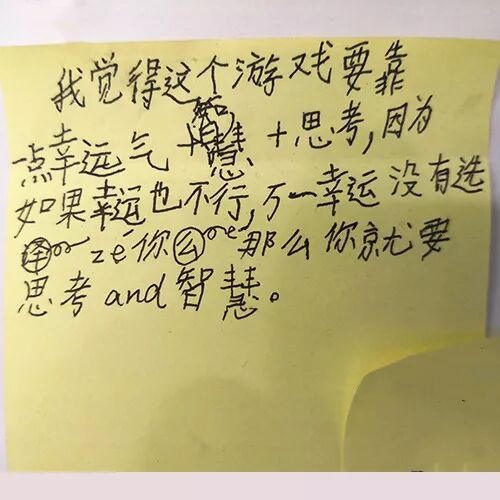 我觉得这个游戏要靠
一点幸远气+智慧+思考,因为
如果幸运也不行,万一幸运没有选
zé你 那么你就要
思考and智慧。